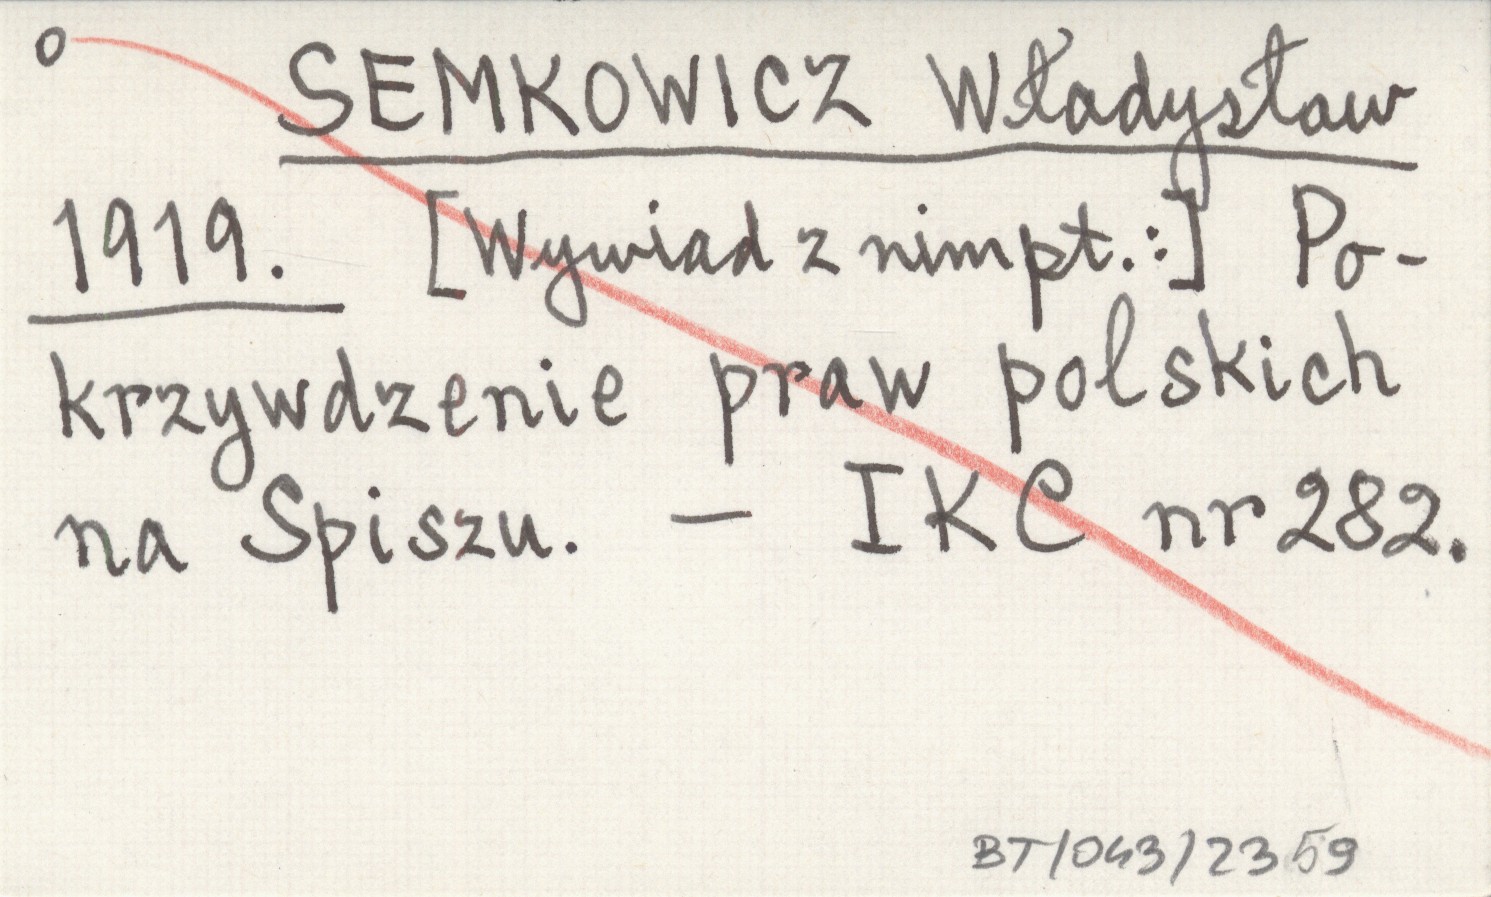 o SEMKOWICZ Władysław
1919. [Wywiad z nim pt.:] Po-
krzywdzenie praw polskich
na Spiszu. — IKC nr 282.
BT/043/2359